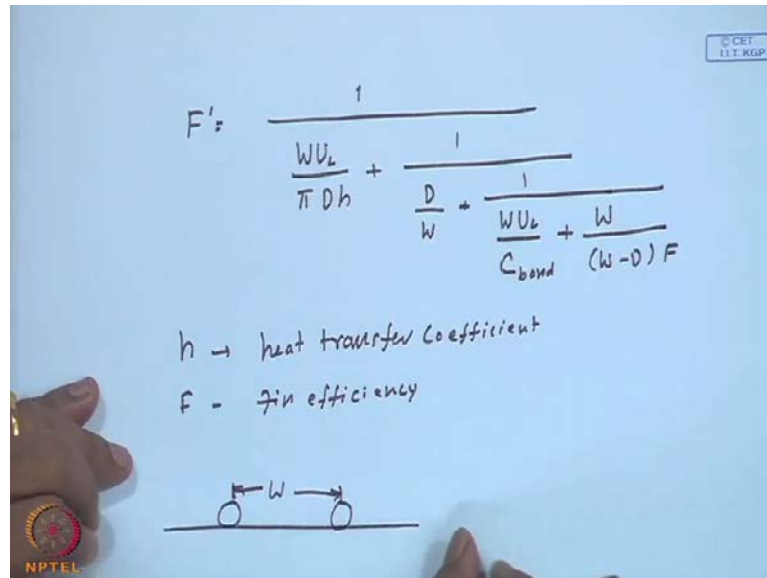 © CET
I.I.T. KGP
F' = 1 / (WU_L / (π D h) + 1 / (D / W + 1 / (WU_L / C_bond + W / ((W-D) F))))
h → heat transfer coefficient
F - Fin efficiency
W
NPTEL